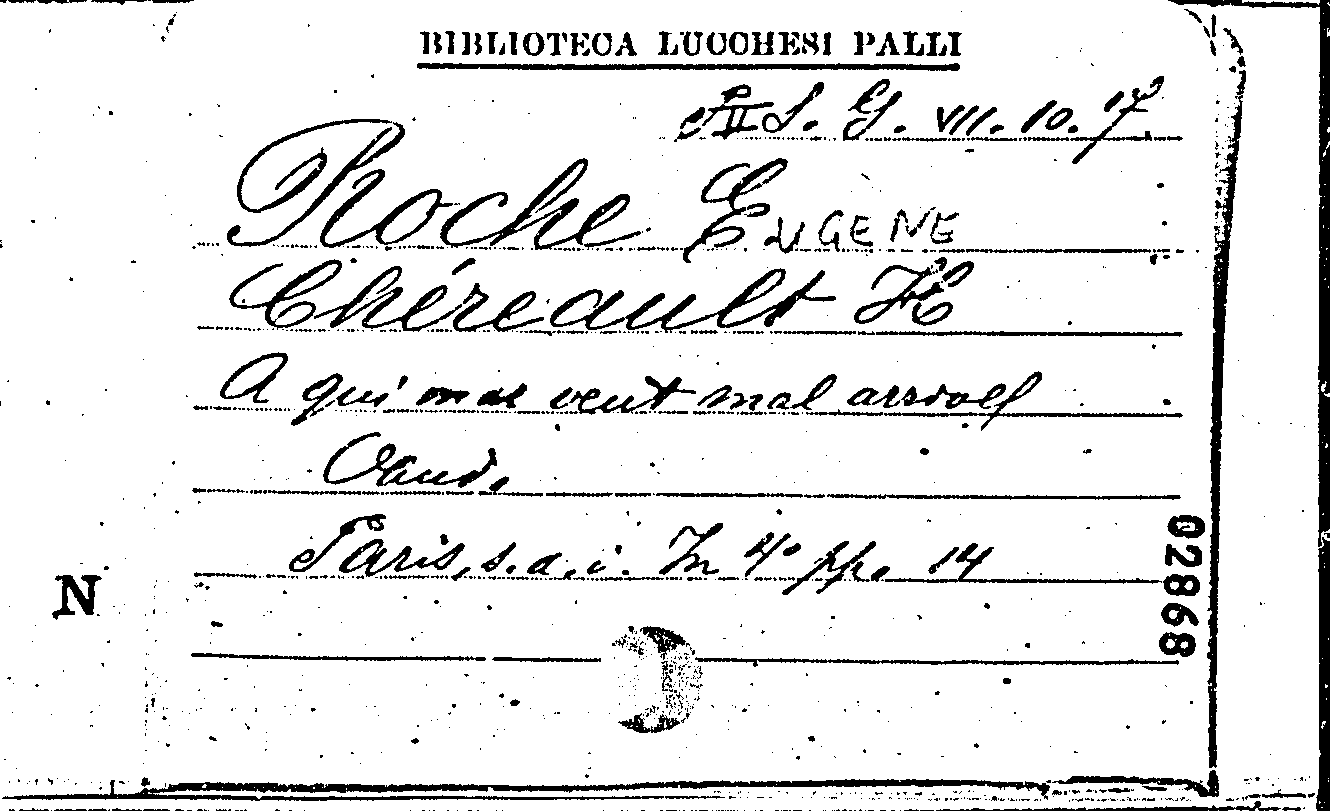 BIBLIOTECA LUCCHESI PALLI
S. G. VII. 10. 17.
Roche EUGENE
Chéreault H
A qui mal veut mal arrive
Vaud.
Paris, s.a.i. In 4° pp. 14
N
02868